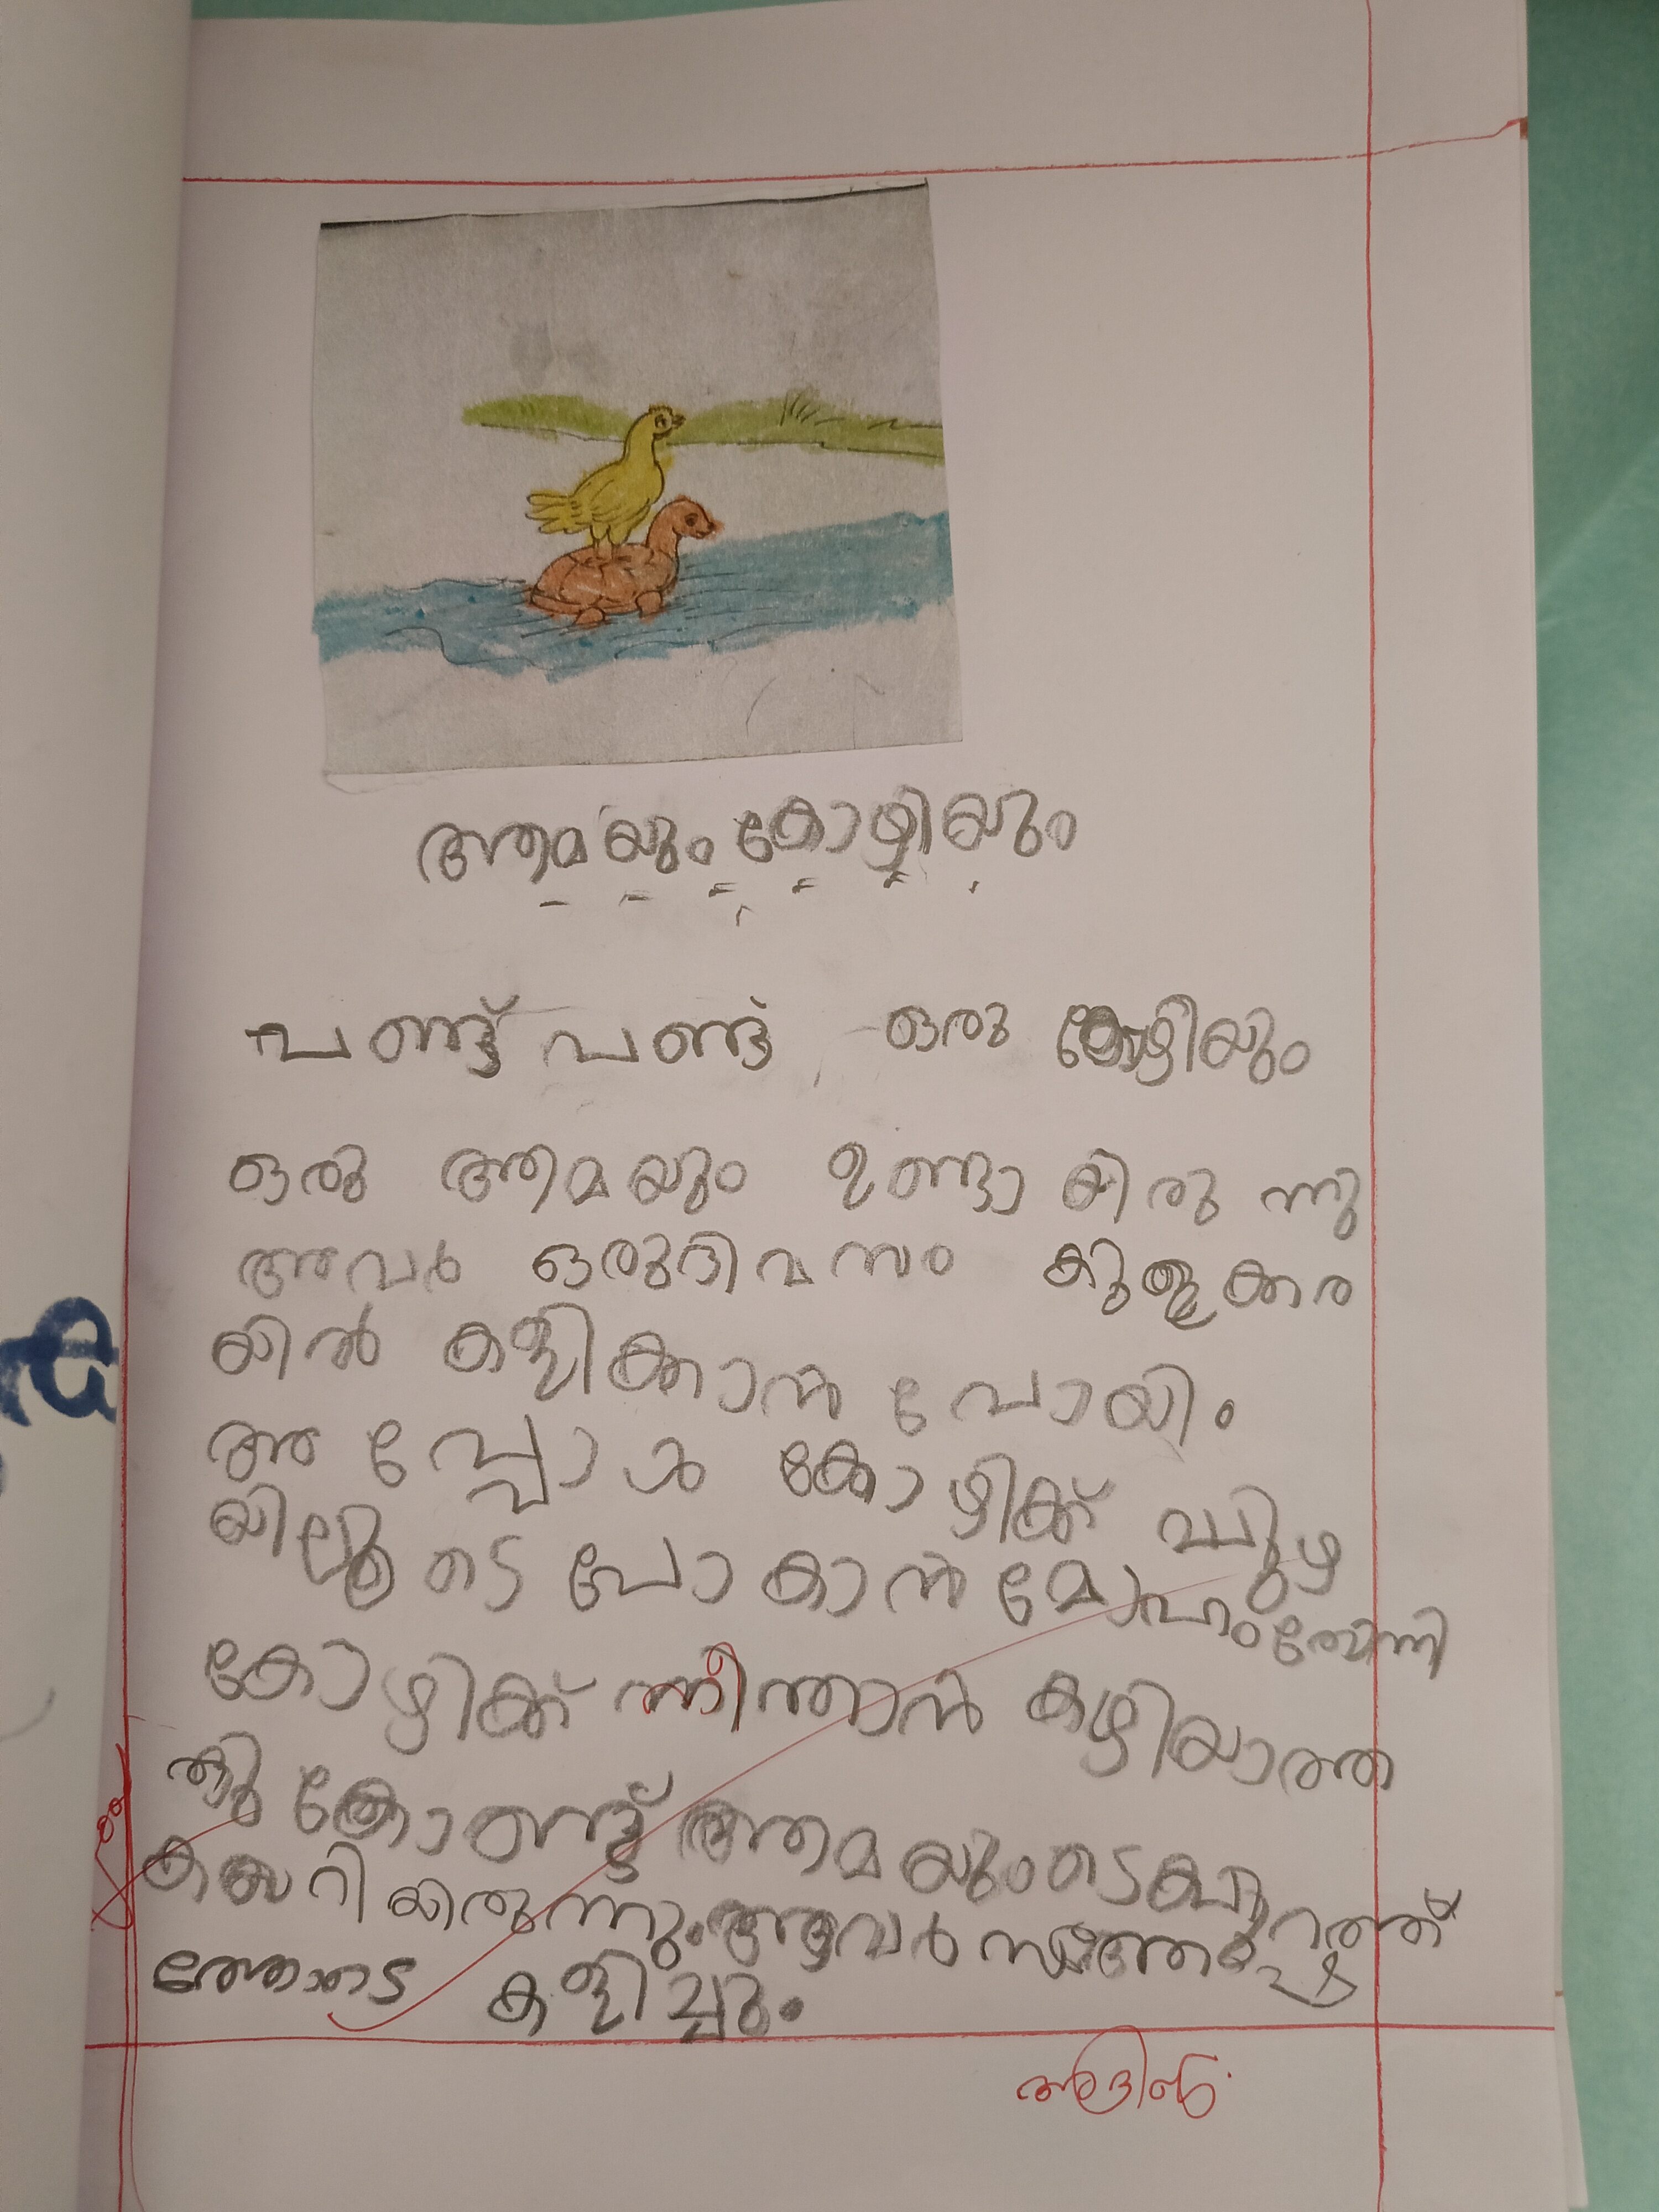 ആമയും കോഴിയും
പണ്ട് പണ്ട് ഒരു കോഴിയും
ഒരു ആമയും ഉണ്ടായിരുന്നു
അവർ ഒരുദിവസം കുളക്കര
യിൽ കളിക്കാൻ പോയി.
അപ്പോൾ കോഴിക്ക് പുഴ
യിലൂടെ പോകാൻ മോഹംതോന്നി
കോഴിക്ക് നീന്താൻ കഴിയാത്ത
തു കോണ്ട് ആമയുംടെ പുറത്ത്
കയറിയിരുന്നു. അവർ സന്തോഷ
ത്തോടെ കളിച്ചു.